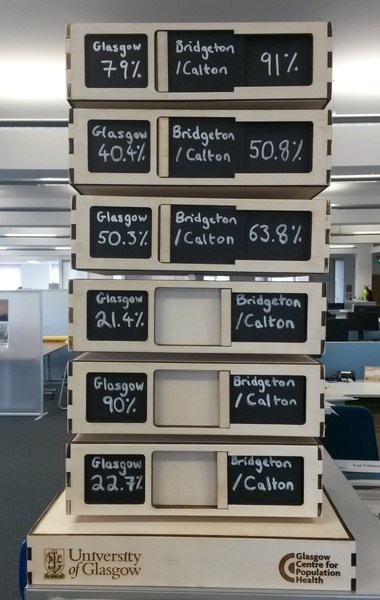 Glasgow
79%
Bridgeton
/Calton
91%
Glasgow
40.4%
Bridgeton
/Calton
50.8%
Glasgow
50.3%
Bridgeton
/Calton
63.8%
Glasgow
21.4%
Bridgeton
/Calton
Glasgow
90%
Bridgeton
/Calton
Glasgow
22.7%
Bridgeton
/Calton
University
of Glasgow
Glasgow
Centre for
Population
Health